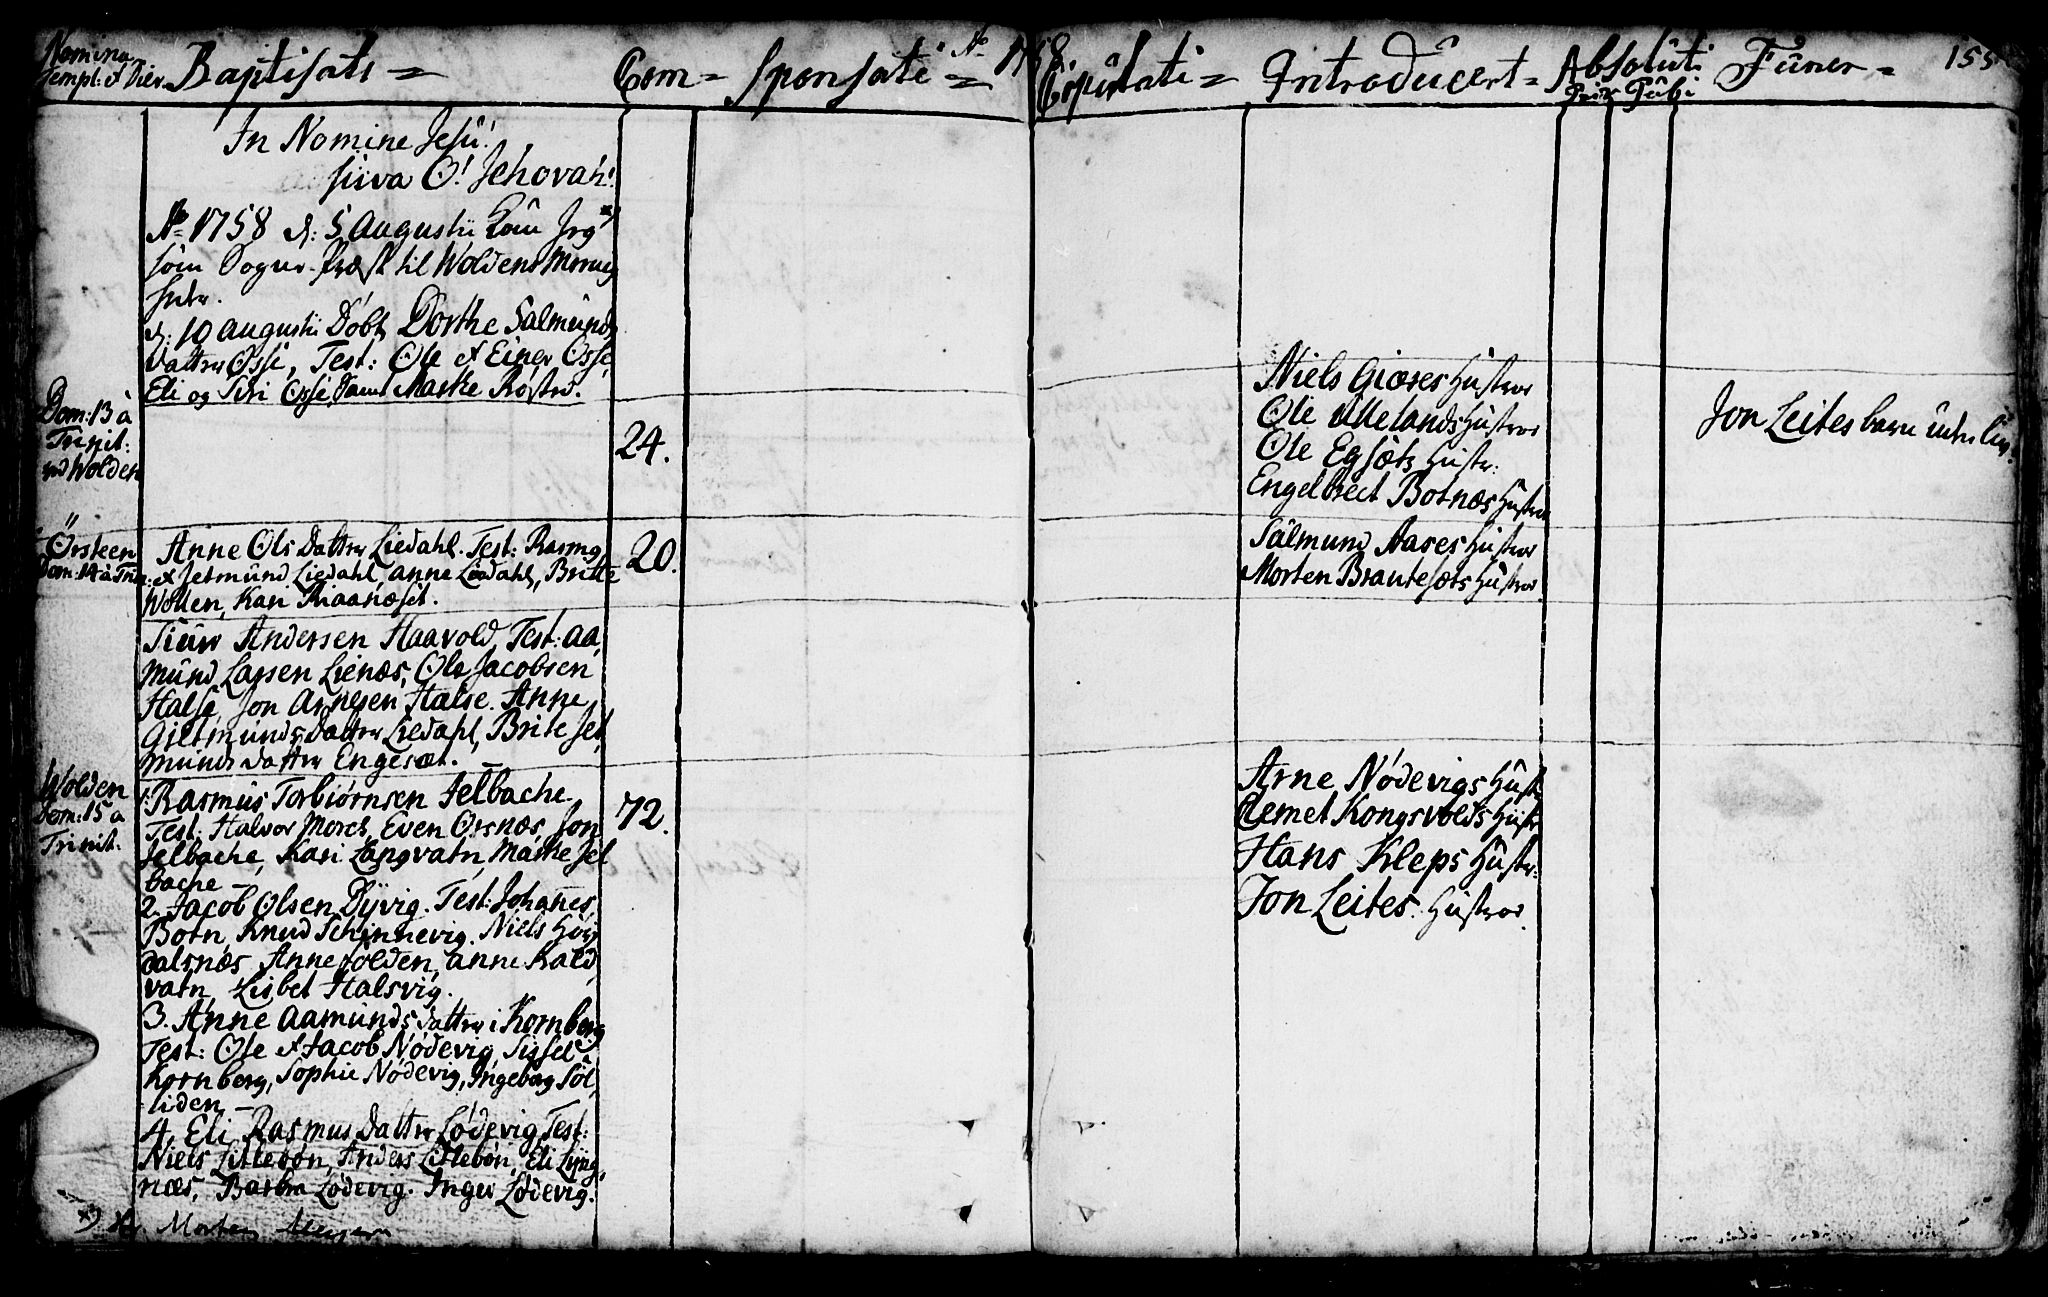 Nomina
Templ: & Dier.
Baptisati =
Com =
Sponsati =
Ao 1758.
Copulati =
Introducert =
Absoluti
Priv Publi
Funer =
155
In Nomine Jesu!
juva O! Jehovah!
Ao 1758 d: 5 Augustii kom Jeg
som Sogne-Præst til Woldens
d: 10 Augustii Døbt Dorthe Salmunds
Datter Osse, Test: Ole & Einer Osse,
Eli og Siri Osse, Marthe
Dom: 13 à
Trinit:
ved Wolden
24.
Niels Giæres Hustroe
Ole Hustroe
Ole Egsæts Hustr:
Engelbrect Botnæs Hustroe
Jon Leites barn
Ørsteen
Dom: 14 à Trin:
Anne Ols Datter Liedahl. Test: Rasmus
& Jetmund Liedahl, Anne Liedahl, Britte
Wollen, Kari
20.
Salmund Aases Hustroe
Morten Brautesæts Hustroe
Andersen Haavold, Test: Aa,
mund Larsen Lienæs, Ole Jacobsen
Halse, Jon Arnesen Halse. Anne
Gietmunds Datter Liedahl, Brite Jet,
munds datter Engesæt.
Wolden
Dom: 15 a
Trinit.
1. Rasmus Torbiørnsen Jelbache.
Test: Halvor Morch, Even Orsnæs, Jon
Jelbache, Kari Langvatn, Marthe Jel
bache
72.
Arne Nødevigs Hustr
Clemet Kongsvolds Hustr
Hans Kleps Hustr:
Jon Leites Hustroe.
2. Jacob Olsen Dyvig. Test: Johanes
Botn, Knud Schinnevig. Niels
dalsnæs, Anne folden, anne Kald,
vatn, Lisbet Halsvig.
3. Anne Aamunds Datter i Kornberg
Test: Ole & Jacob Nødevig, Sissel
Kornberg, Sophie Nødevig, Ingeborg Søl,
liden
4. Eli Rasmus Datter Lødevig Test:
Niels Litlebøn, Anders Litlebøn, Eli Lyng,
næs, Barbra Lødevig. Inger Lødevig.
*) Hr. Morten